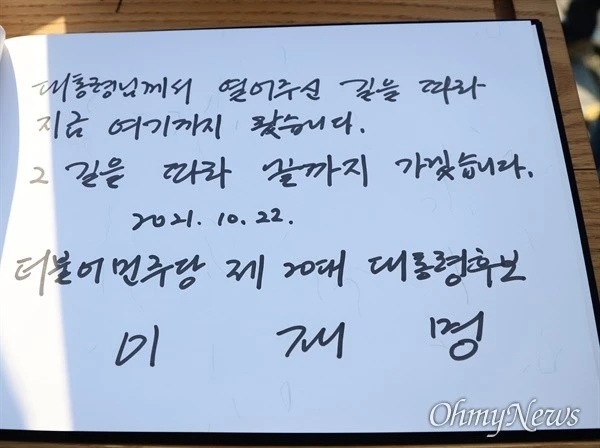 대통령님께서 열어주신 길을 따라
지금 여기까지 왔습니다.
그 길을 따라 끝까지 가겠습니다.
2021. 10. 22.
더불어민주당 제 20대 대통령후보
이 재 명
OhmyNews